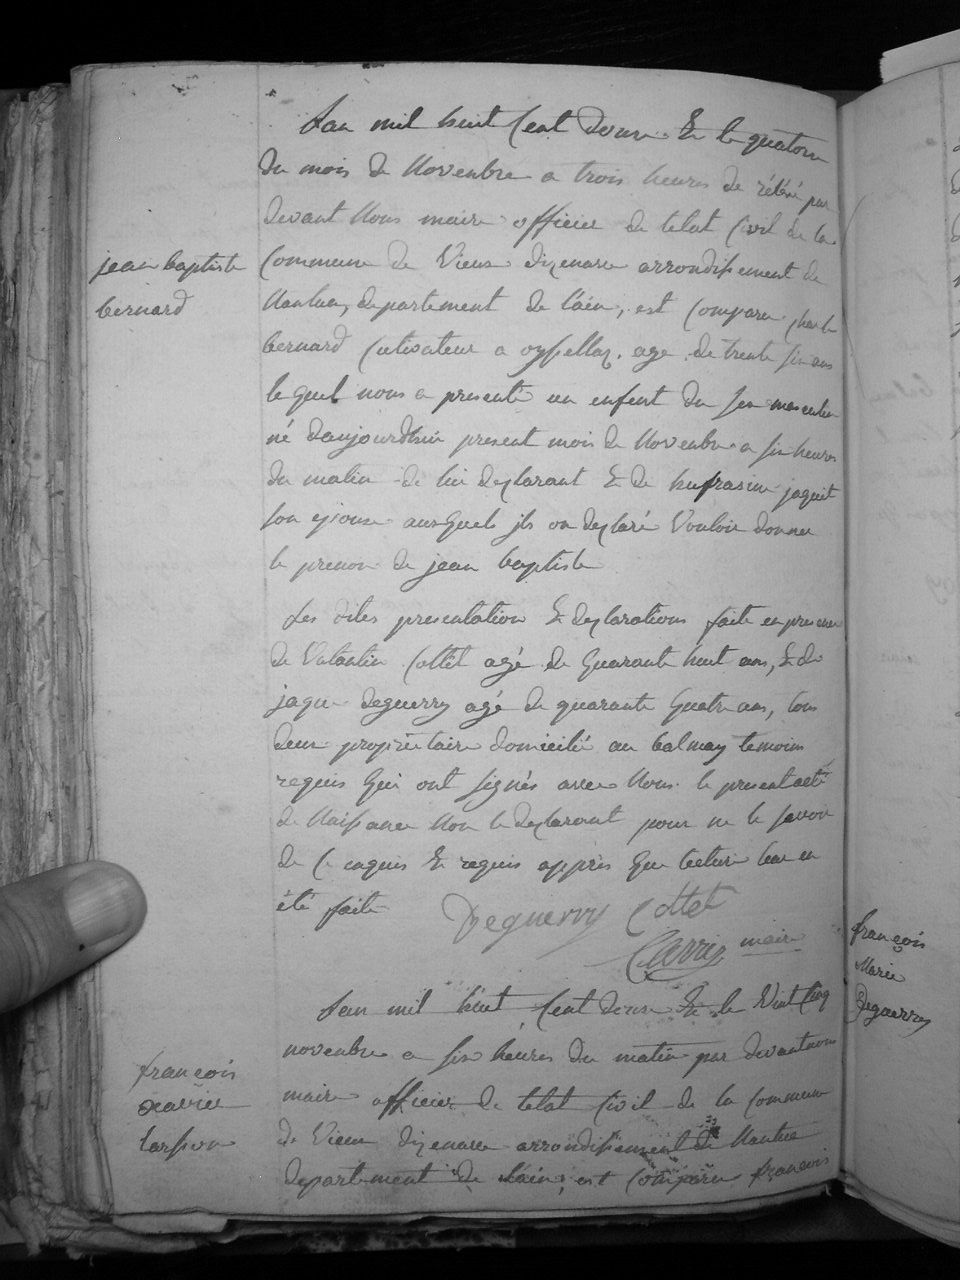 jean baptiste
bernard
Lan mil huit Cent douze & le quatorze
du mois de Novembre a trois heures de rélévé par
devant Nous maire officier de letat Civil de la
Commune de Vieux dizenave arrondissement de
Nantua, departement de l'ain, est Comparu
bernard Cultivateur a agé de trente six ans
lequel nous a presenté un enfent du sex masculin
né daujourdhui present mois de Novembre a six heures
du matin de lui declarant & de jaquit
son epouse auxquels ils on declaré Vouloir donner
le prenon de jean baptiste
Les dites presentation & declarations faite en presence
de Valentin Cottet agé de Quarante huit ans, & de
jaque deguerry agé de quarante Quatre ans, tous
deux propriétaire domicilié au balmay temoins
requis Qui ont signés avec Nous le present acte
de Naissance Non le declarant pour ne le savoir
de Ce enquis & requis appris Que lecture leur en
été faite
Deguerry Cottet
maire
françois
xavier
Lan mil huit Cent douze & le Vint Cinq
novembre a six heures du matin par devant nous
maire officier de letat Civil de la Commune
de Vieux dizenave arrondissement de Nantua
departement de l'ain, est Comparu françois
françois
Marie
Deguerry